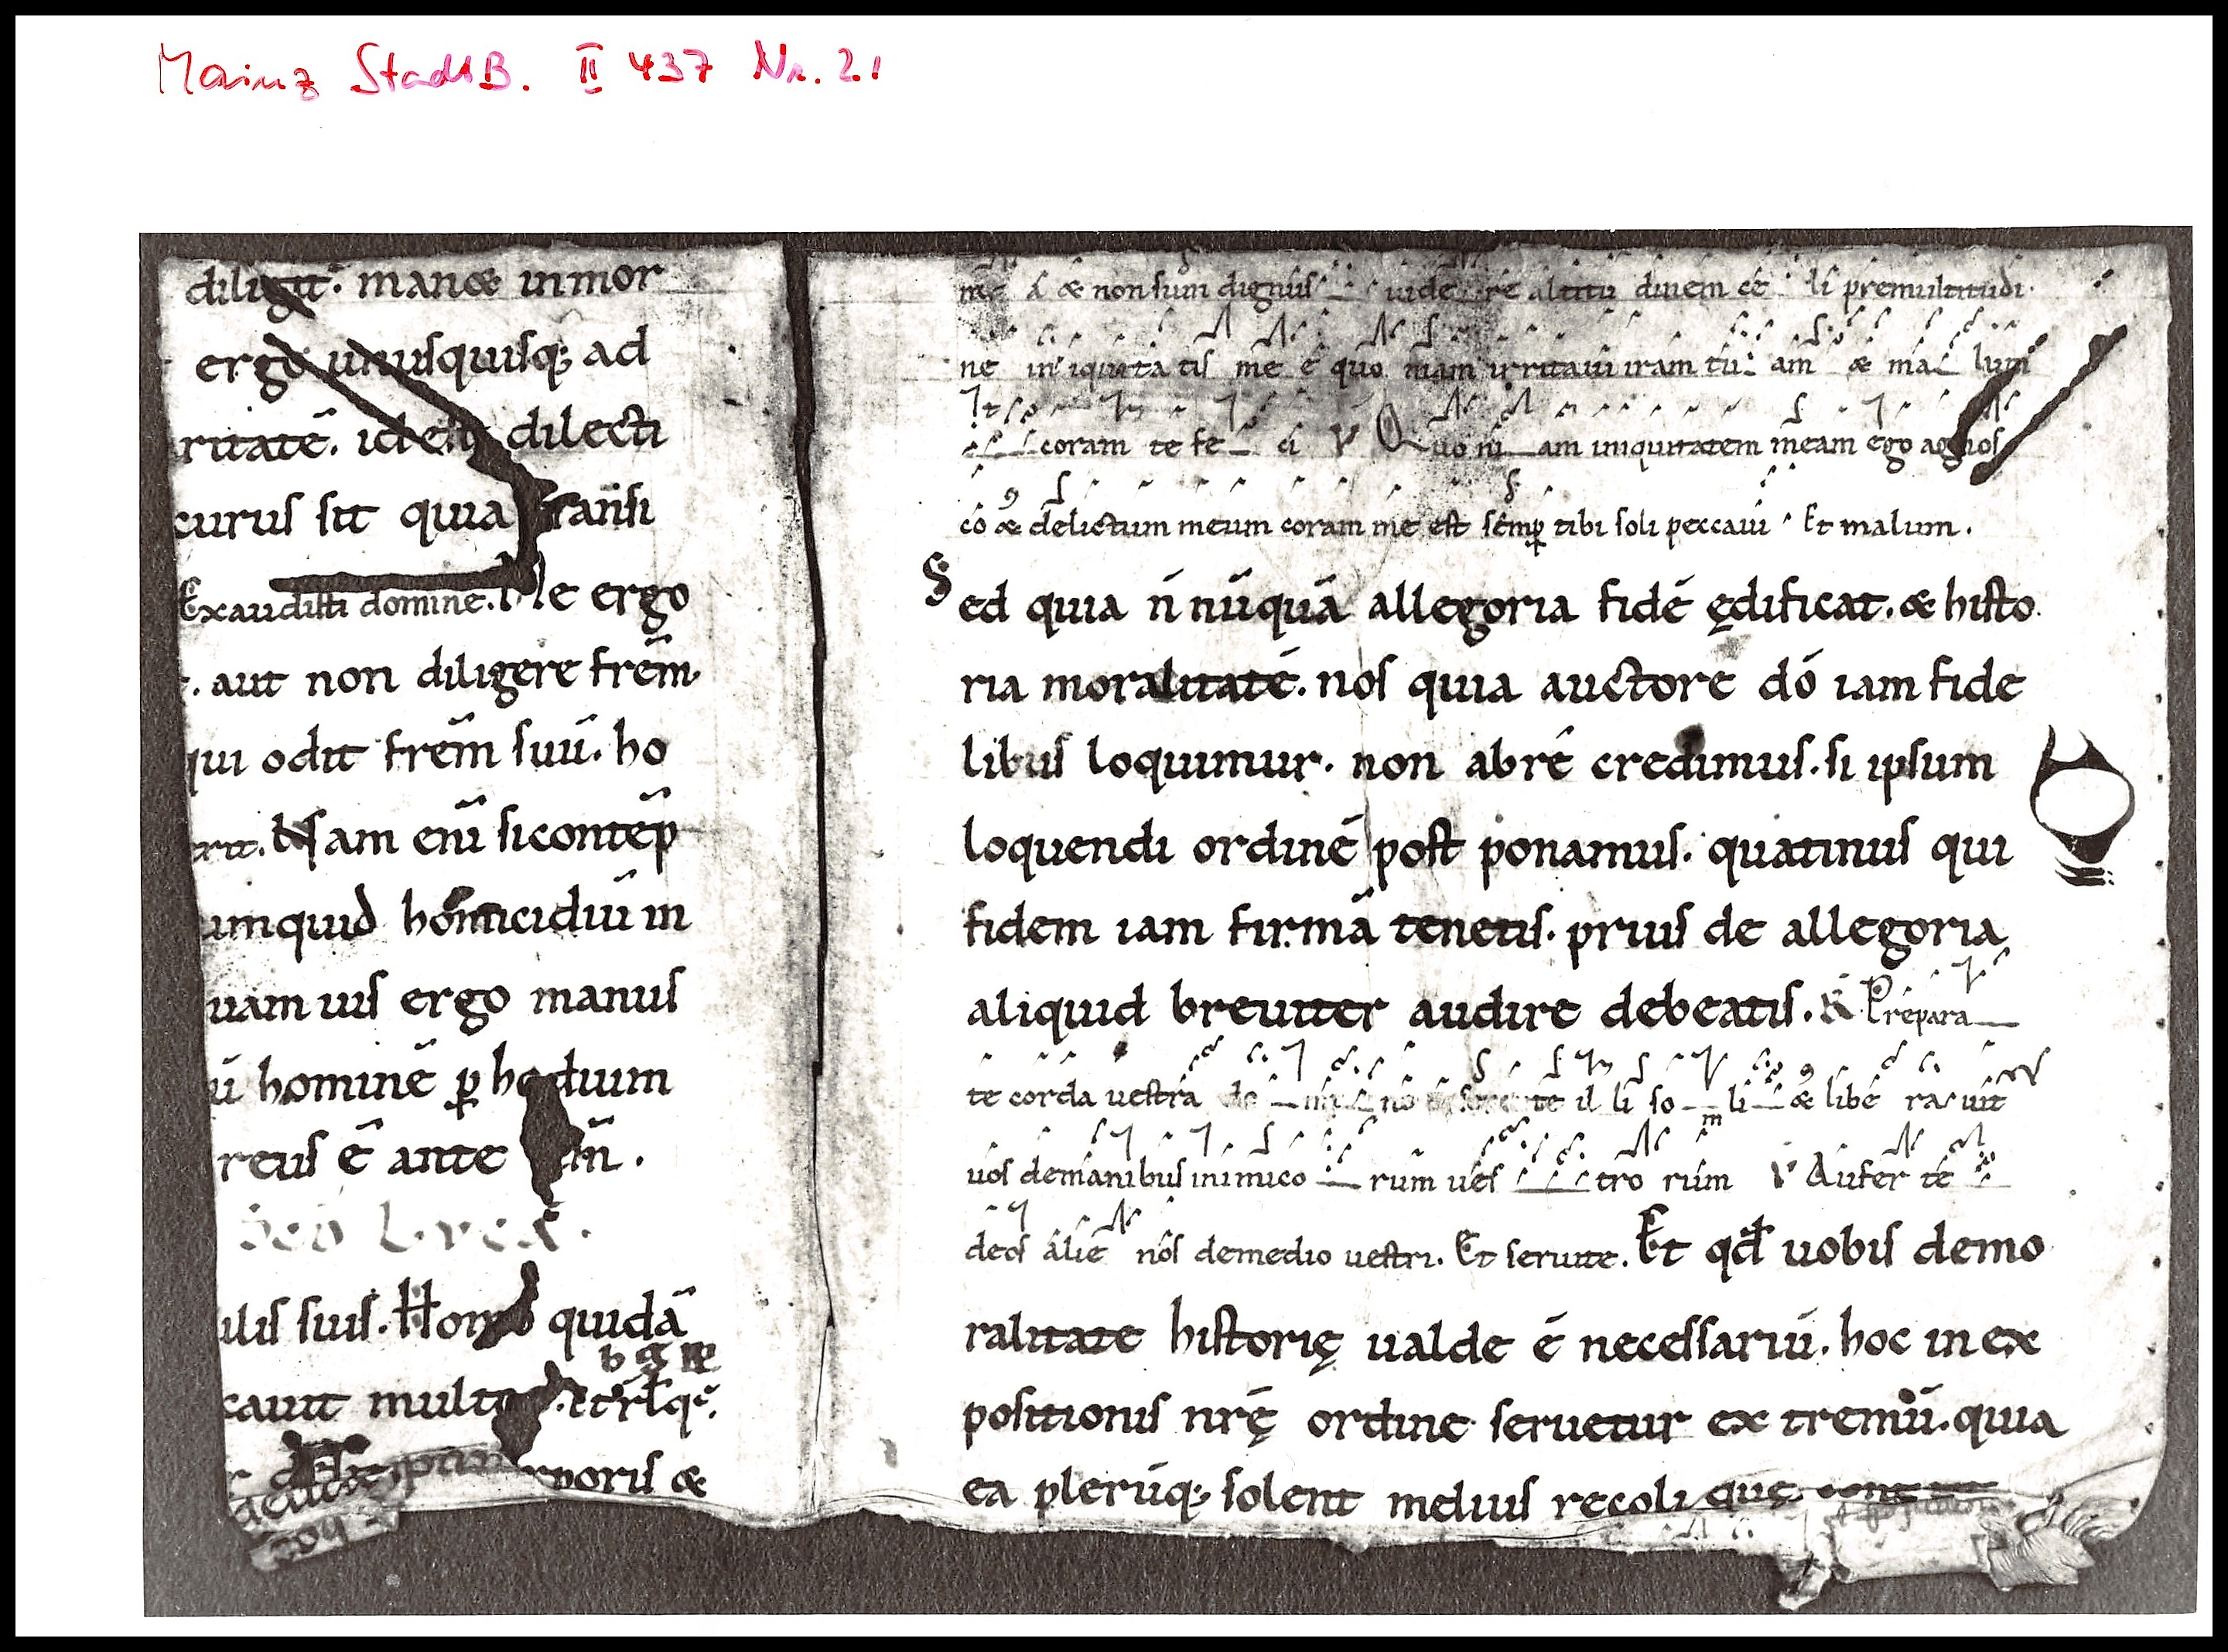 Mainz StadtB. II 437 Nr. 21
diligit. manæ in mor
ergo unusquisq; ad
ritatē. id est dilecti
curus sit quia transi
Exaudisti domine. Ille ergo
. aut non diligere frēm.
qui odit frēm suū. ho
Nam enī si contēp
umquid homicidiū in
uam uis ergo manus
ū hominē p hodium
reus ē ante dm̄.
Lucā.
ulis suis. Homo quidā
cauit multos. Et rlq̄.
poris æ
me a æ non sum dignus uide re altitu dinem ce li pre multitudi
ne in iquita tis me e quo niam irritaui iram tu am æ ma lum
coram te fe ci V Quo ni am iniquitatem meam ego agnos
co æ delictum meum coram me est semp tibi soli peccaui. Et malum.
Sed quia n̄ nūquā allegoria fidē ędificat. æ histo
ria moralitatē. nos quia auctore dō iam fide
libus loquimur. non abrē credimus. si ipsum
loquendi ordinē post ponamus. quatinus qui
fidem iam firmā tenetis. prius de allegoria
aliquid breuiter audire debeatis. R Prepara
te corda uestra do mi no et serui te il li so li æ libe ra uit
m
uos de manibus inimico rum ues tro rum V Aufer te
deos alie nos de medio uestri. Et seruite. Et qd uobis de mo
ralitate historię ualde ē necessariū. hoc in ex
positionis nrę̄ ordine seruetur ex tremū. quia
ea plerūq; solent melius recoli quę